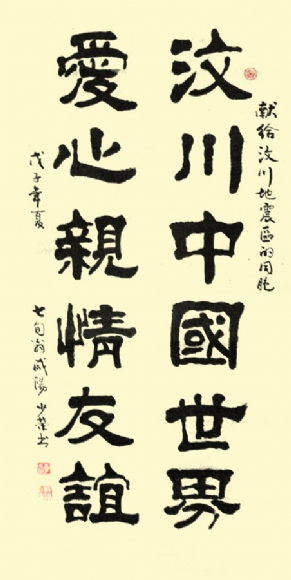 献给汶川地震区的同胞
汶川中國世界
愛心親情友誼
戊子年夏
七旬翁咸陽少榮书